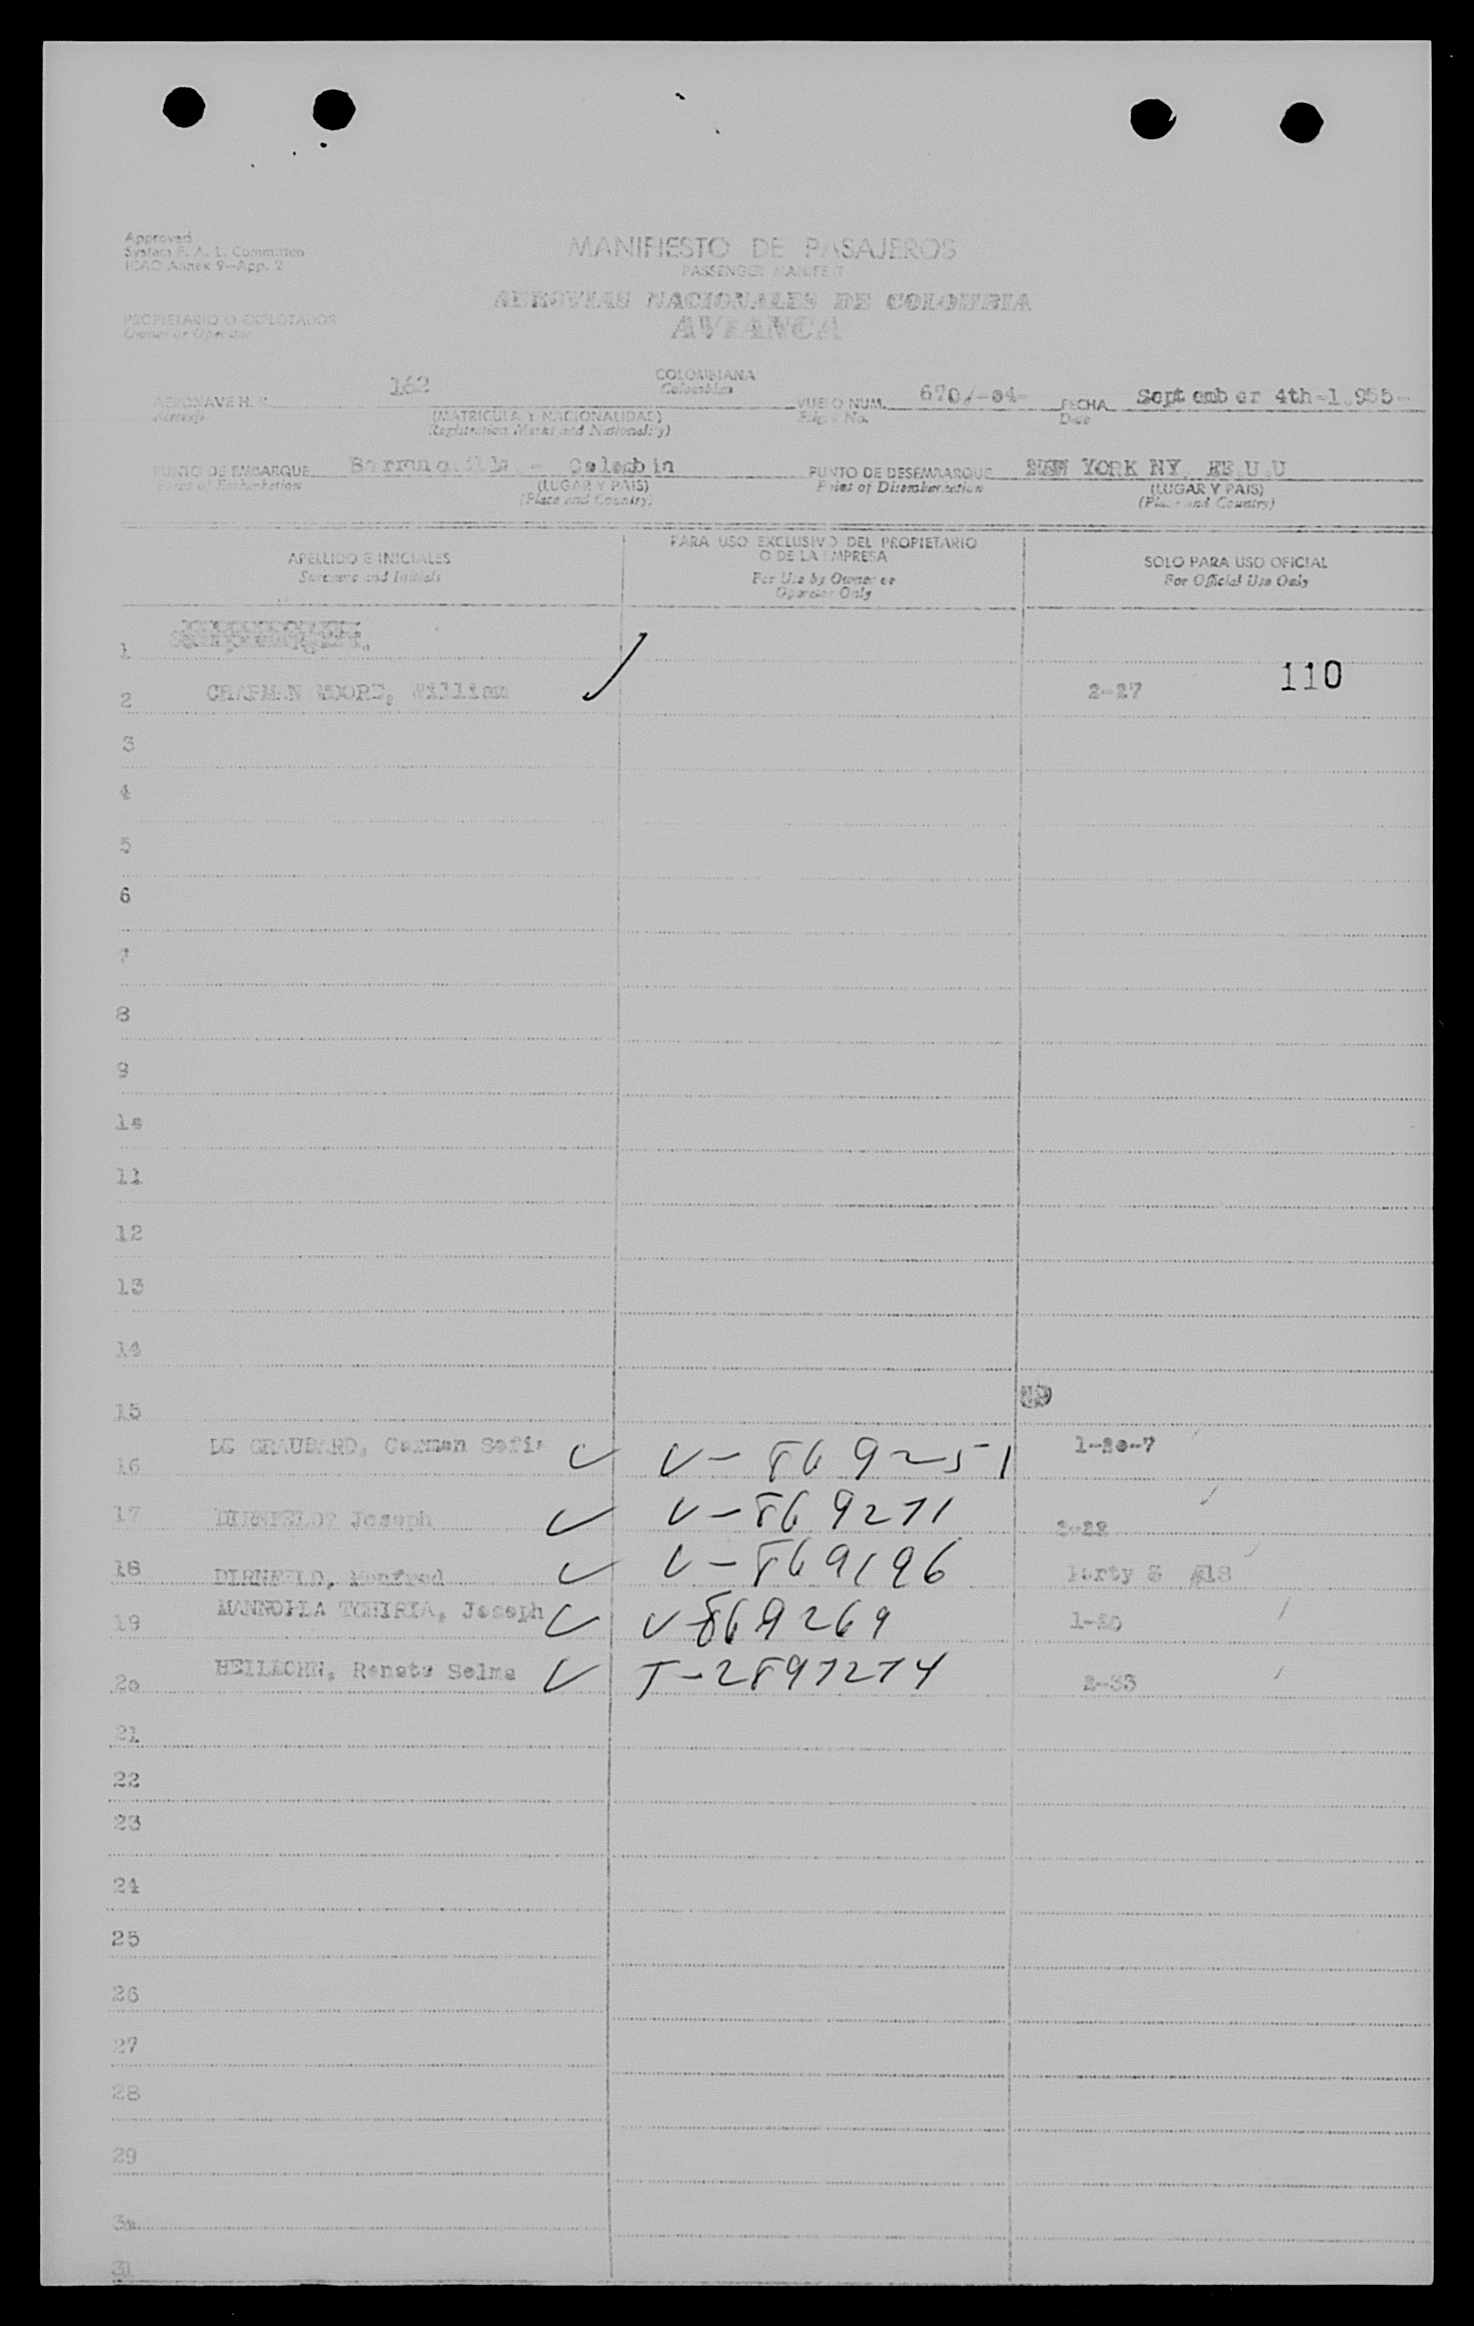 Approved
System F. A. L. Committee
ICAO Annex 9-App. 2
MANIFIESTO DE PASAJEROS
PASSENGER MANIFEST
AEROVIAS NACIONALES DE COLOMBIA
AVIANCA
PROPIETARIO O EXPLOTADOR
Owner or Operator
AERONAVE H. K 162 COLOMBIANA VUELO NUM. 670/-04- FECHA September 4th-1.955-
Aircraft (MATRICULA Y NACIONALIDAD) Colombian Flight No. Date
(Registration Marks and Nationality)
PUNTO DE EMBARQUE Barranquilla - Colombia PUNTO DE DESEMBARQUE NEW YORK NY EE.U.U
Point of Embarkation (LUGAR Y PAIS) Point of Disembarkation (LUGAR Y PAIS)
(Place and Country) (Place and Country)
APELLIDO E INICIALES PARA USO EXCLUSIVO DEL PROPIETARIO O DE LA EMPRESA SOLO PARA USO OFICIAL
Surname and Initials For Use by Owner or Operator Only For Official Use Only
1
2 CHAPMAN MOORE, William 2-27 110
3
4
5
6
7
8
9
1o
11
12
13
14
15
16 DE GRAUBARD, Carmen Sofia V-869251 1-2o-7
17 Joseph V-869271 2-22
18 DIRNFELD, Manfred V-869196 #18
19 Joseph V-869269
2o Renate Selma T-2897274 2-33
21
22
23
24
25
26
27
28
29
3o
31